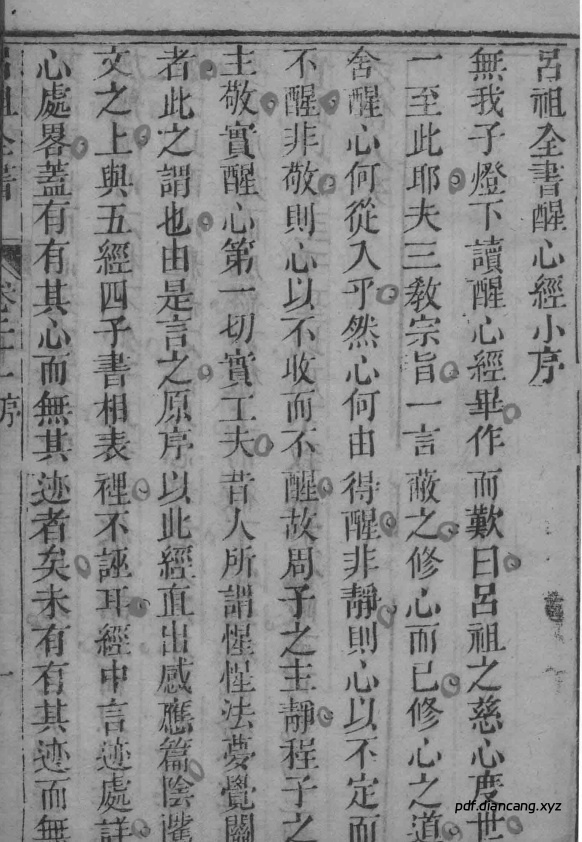 呂祖全書醒心經小序
無我子燈下讀醒心經畢作而歎曰呂祖之慈心度世
一至此耶夫三教宗旨一言蔽之修心而已修心之道
舍醒心何從入乎然心何由得醒非靜則心以不定而
不醒非敬則心以不收而不醒故周子之主靜程子之
主敬實醒心第一切實工夫昔人所謂惺惺法夢覺關
者此之謂也由是言之原序以此經直出感應篇陰騭
文之上與五經四子書相表裡不誣耳經中言迹處詳
心處畧蓋有有其心而無其迹者矣未有有其迹而無
呂祖全書 卷三十一序 一
pdf.diancang.xyz